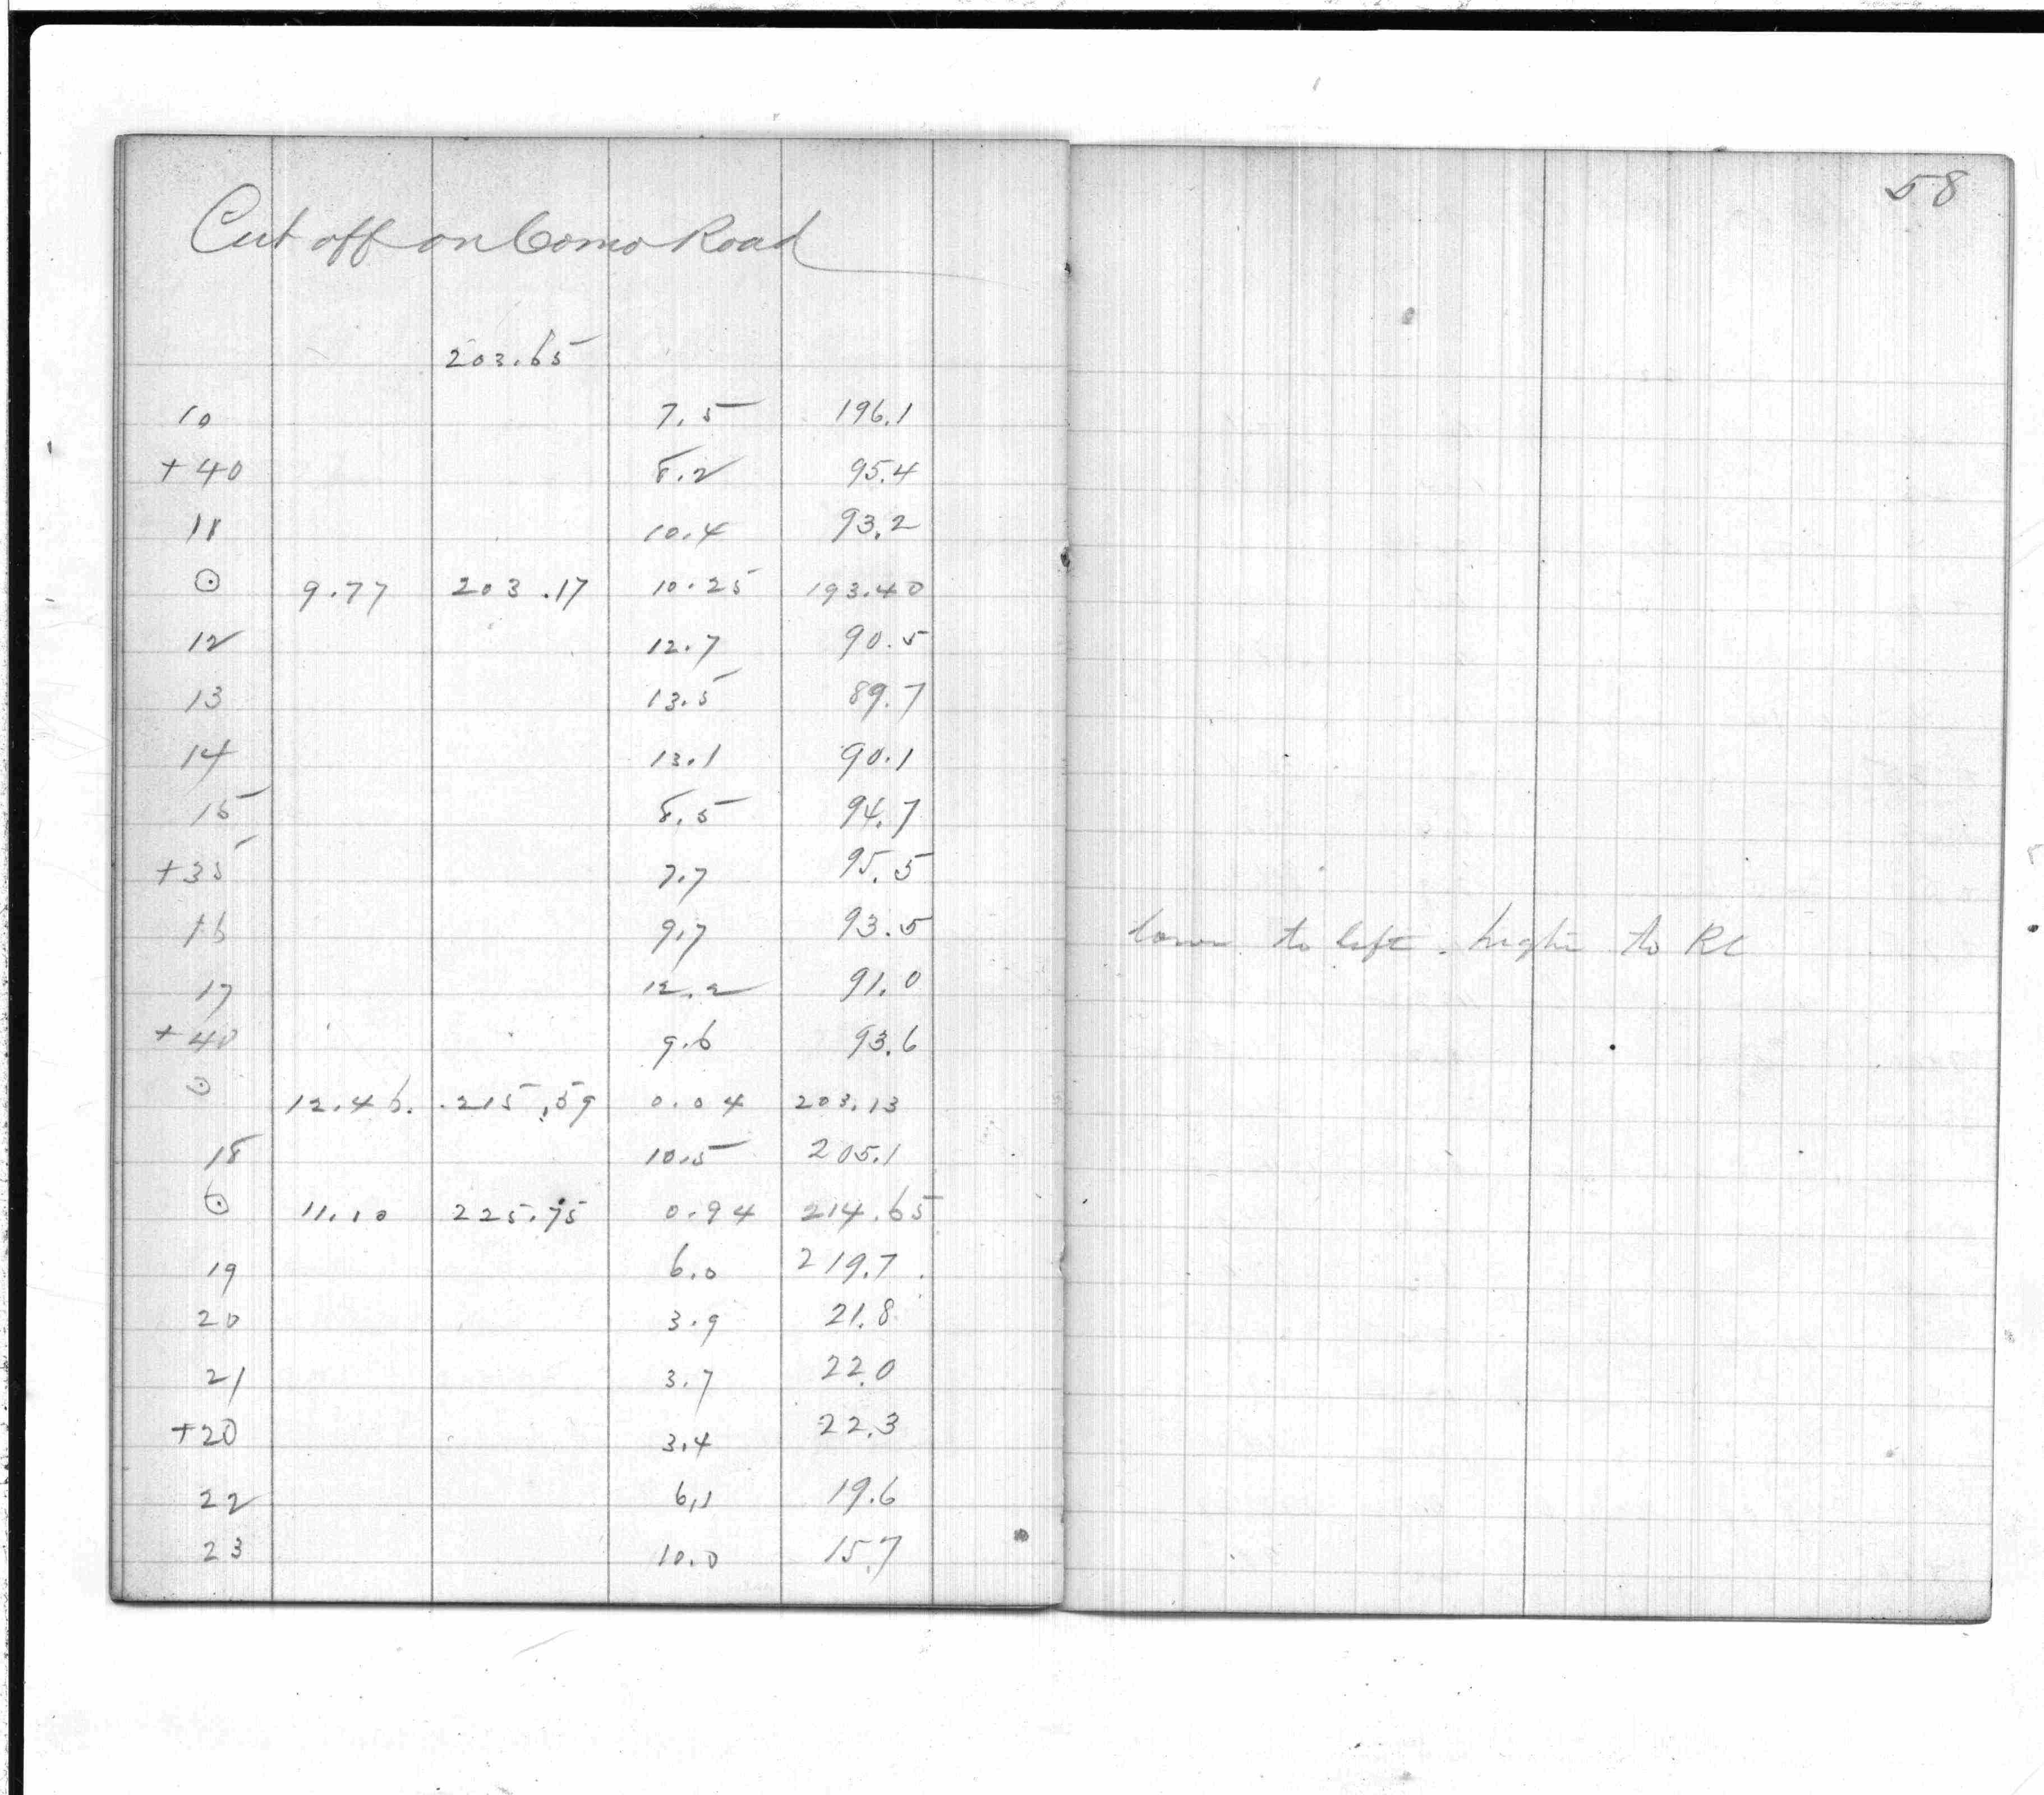 Cut off on Como Road
203.65
10 7.5 196.1
+40 8.2 95.4
11 10.4 93.2
⊙ 9.77 203.17 10.25 193.40
12 12.7 90.5
13 13.5 89.7
14 13.1 90.1
15 8.5 94.7
+35 7.7 95.5
16 9.7 93.5
17 12.2 91.0
+40 9.6 93.6
⊙ 12.46 215.59 0.04 203.13
18 10.5 205.1
⊙ 11.10 225.75 0.94 214.65
19 6.0 219.7
20 3.9 21.8
21 3.7 22.0
+20 3.4 22.3
22 6.1 19.6
23 10.0 15.7
58
lower to left. higher to Rt